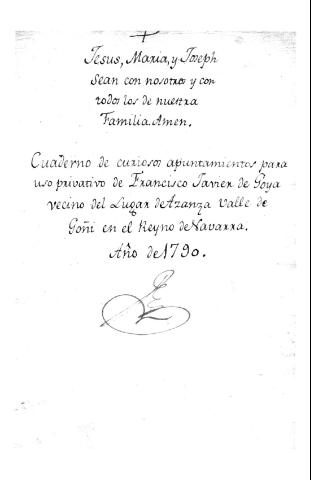 Jesus, Maria, y Joseph
Sean con nosotros y con
todos los de nuestra
Familia. Amen.
Cuaderno de curiosos apuntamientos para
uso privativo de Francisco Javier de Goya
vecino del Lugar de Azanza Valle de
Goñi en el Reyno de Navarra.
Año de 1790.